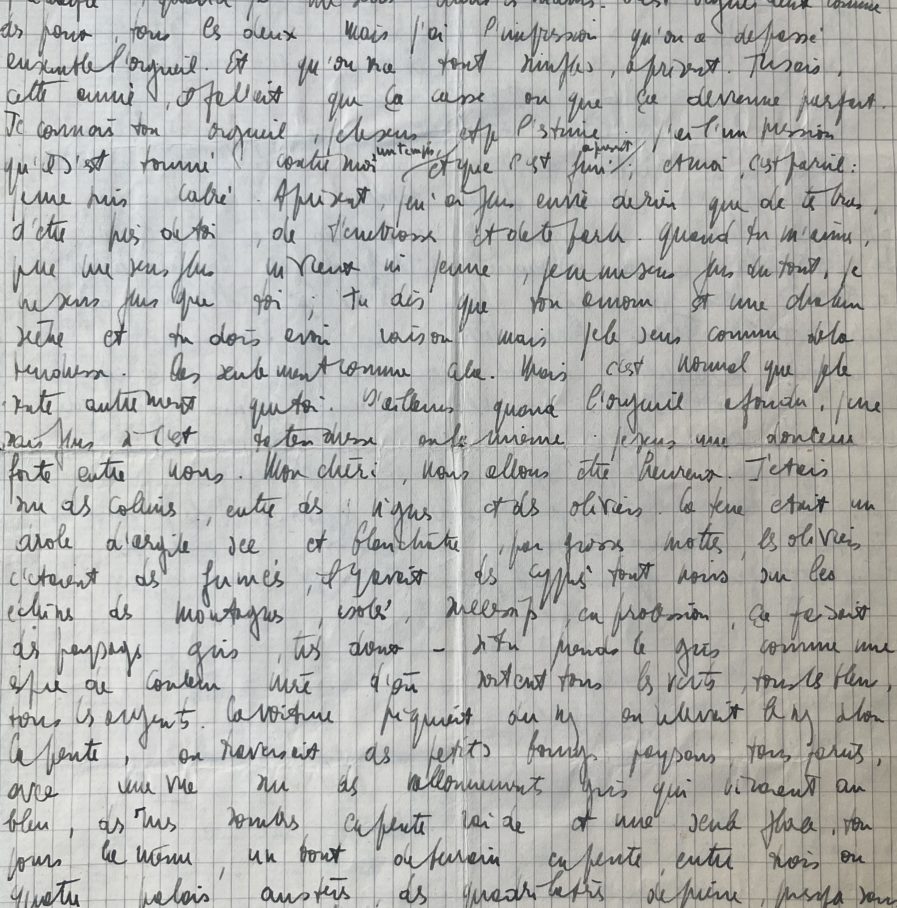 des paons, tous les deux mais j'ai l'impression qu'on a dépassé
ensemble l'orgueil. Et qu'on va tout , à présent. Tu sais,
cette année, il fallait que ça casse ou que ça devienne parfait.
Je connais ton orgueil, je le sens et je l'estime, j'ai l'impression
qu'il s'est tourné contre moi un temps, et que c'est fini, à présent ; et moi, c'est pareil :
je me suis cabré. A présent, je n'ai plus envie de rien que de tes bras,
d'être près de toi, de t'embrasser et de te parler. Quand tu m'aimes,
je ne me sens plus ni vieux ni jeune, je ne me sens plus du tout, je
ne sens plus que toi ; tu dis que ton amour est une chaleur
sèche et tu dois avoir raison mais je le sens comme de la
tendresse. Pas seulement comme cela. Mais c'est normal que je le
sente autrement que toi. D'ailleurs quand l'orgueil a fondu, je ne
sais plus si c'est ta tendresse ou la mienne : je sens une douceur
forte entre nous. Mon chéri, nous allons être heureux. J'étais
sur des collines, entre des vignes et des oliviers. La terre était un
drôle d'argile sec et blanchâtre, par grosses mottes, les oliviers
c'étaient des fumées, il y avait des cyprès tout noirs sur les
échines des montagnes, isolés, , en procession, ça faisait
des paysages gris, très doux – si tu prends le gris comme une
espèce de couleur mère d'où sortent tous les verts, tous les bleus,
tous les argents. La voiture piquait du nez ou relevait le nez selon
la pente, on traversait des petits bourgs paysans, tous pareils,
avec une vue sur des vallonnements gris qui viraient au
bleu, des rues sombres en pente raide et une seule place, tou
jours la même, un bout de terrain en pente, entre trois ou
quatre palais austères, des quadrilatères de pierre, presque sans